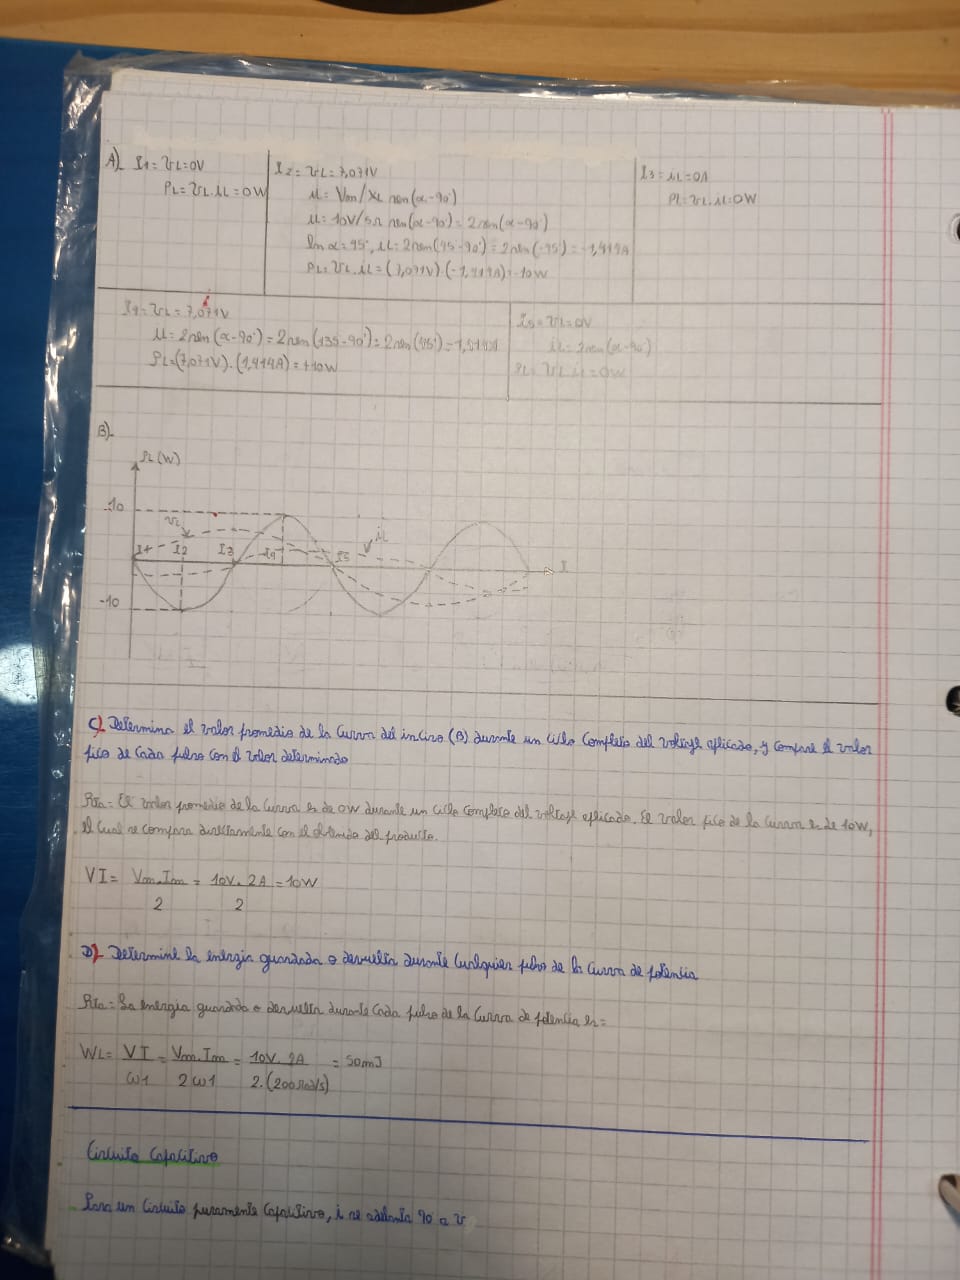 A). I1 = VL = 0V
PL = VL.iL = 0W
I2 = VL = 7,071V
iL = Vm/XL sen(α-90°)
iL = 10V/5Ω sen(α-90°) = 2sen(α-90°)
En α = 45°, iL = 2sen(45-90°) = 2sen(-45°) = -1,414A
PL = VL.iL = (7,071V).(-1,414A) = -10W
I3 = iL = 0A
PL = VL.iL = 0W
I4 = VL = 7,071V
iL = 2sen(α-90°) = 2sen(135-90°) = 2sen(45°) = 1,414A
PL = (7,071V).(1,414A) = +10W
I5 = VL = 0V
iL = 2sen(α-90°)
PL = VL.iL = 0W
B).
PL(W)
10
VL
iL
I1 I2 I3 I4 I5
-10
C). Determina el valor promedio de la curva del inciso (B) durante un ciclo completo del voltaje aplicado, y compare el valor
pico de cada pulso con el valor determinado
Rta= El valor promedio de la curva es de 0W durante un ciclo completo del voltaje aplicado. El valor pico de la curva es de 10W,
el cual se compara directamente con el obtenido del producto.
VI = Vm.Im = 10V. 2A = 10W
2 2
D). Determine la energia guardada o devuelta durante cualquier pulso de la curva de potencia
Rta= La energia guardada o devuelta durante cada pulso de la curva de potencia es=
WL = VI = Vm.Im = 10V. 2A = 50mJ
ω1 2ω1 2.(200rad/s)
Circuito Capacitivo
Para un circuito puramente capacitivo, i se adelanta 90 a v